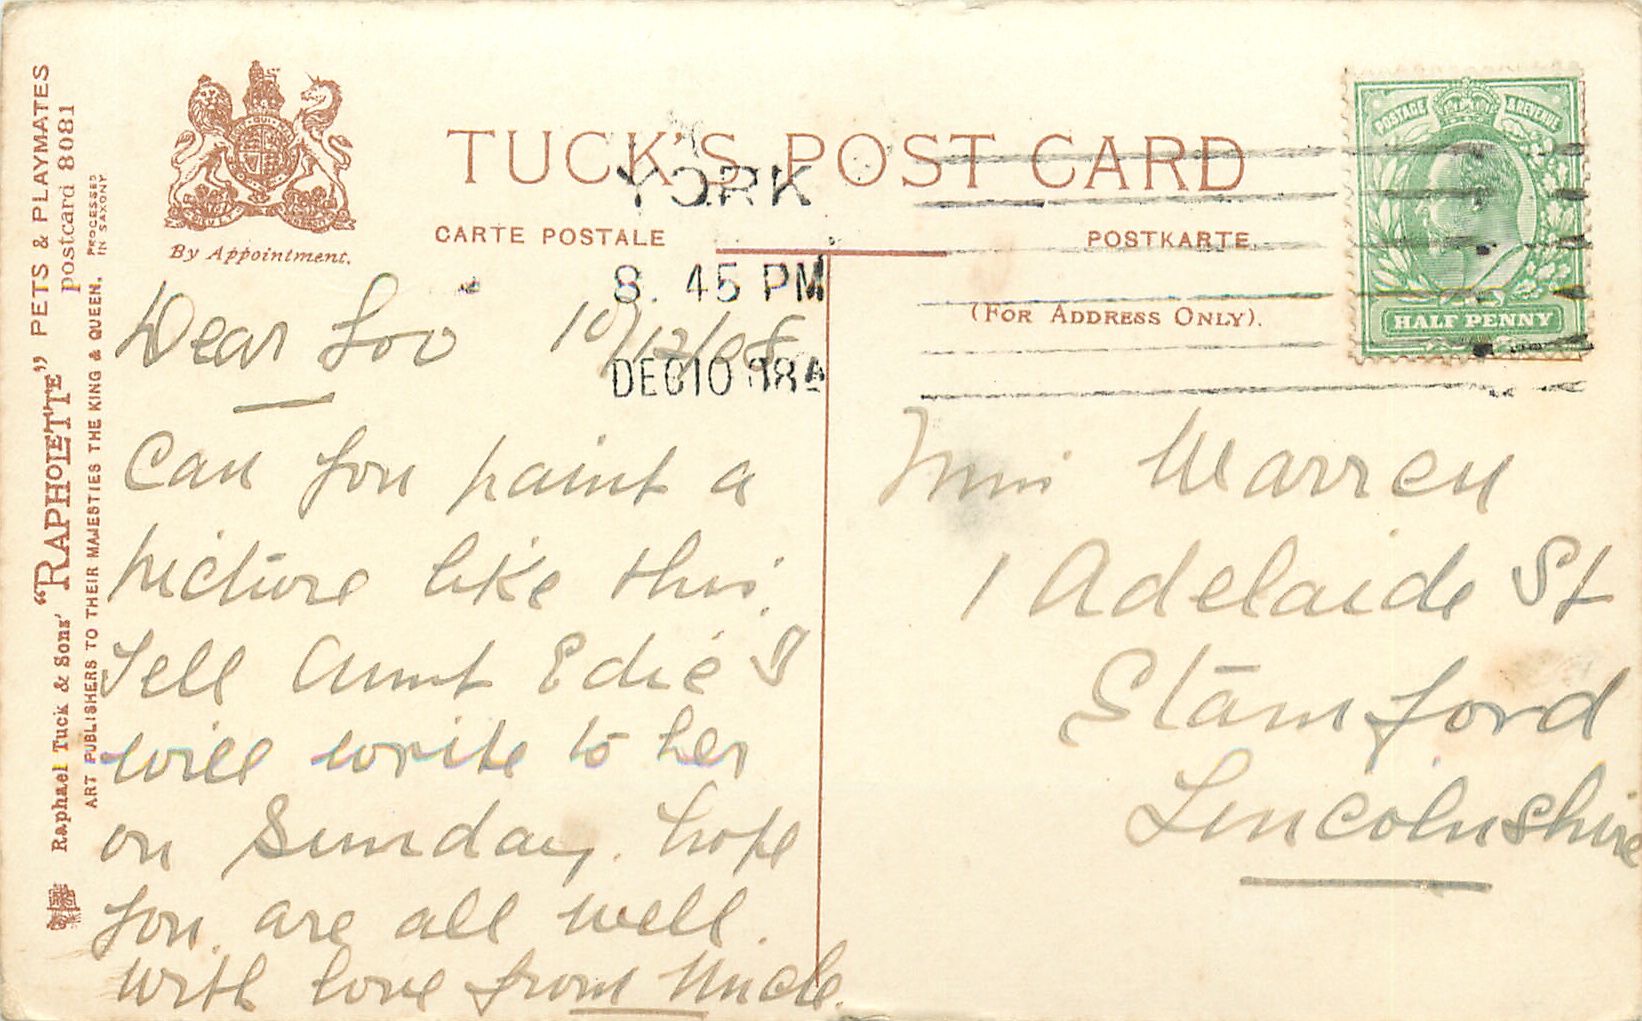 Raphael Tuck & Sons' "RAPHOLETTE" PETS & PLAYMATES
Postcard 8081
ART PUBLISHERS TO THEIR MAJESTIES THE KING & QUEEN.
PROCESSED
IN SAXONY
By Appointment.
TUCK'S POST CARD
CARTE POSTALE
POSTKARTE.
(FOR ADDRESS ONLY).
YORK
8. 45 PM
DEC 10 08
POSTAGE & REVENUE
HALF PENNY
Dear Loo 10/12/08
Can you paint a
picture like this.
Tell Aunt Edie I
will write to her
on Sunday. hope
you are all well.
With love from Uncle.
Miss Warren
1 Adelaide St
Stamford
Lincolnshire